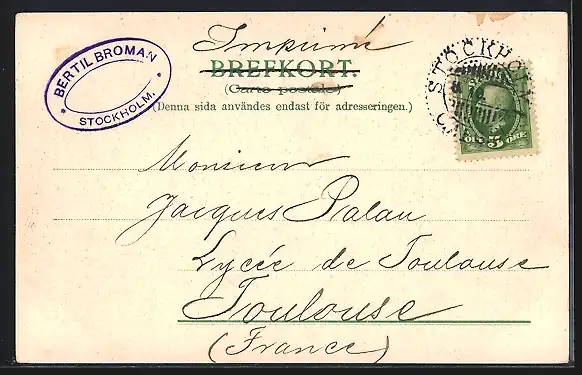 Imprimé
BREFKORT.
(Carte postale)
(Denna sida användes endast för adresseringen.)
BERTIL BROMAN
STOCKHOLM.
STOCKHOL
5 ÖRE
Monsieur
Jacques Palau
Lycée de Toulouse
Toulouse
(France)